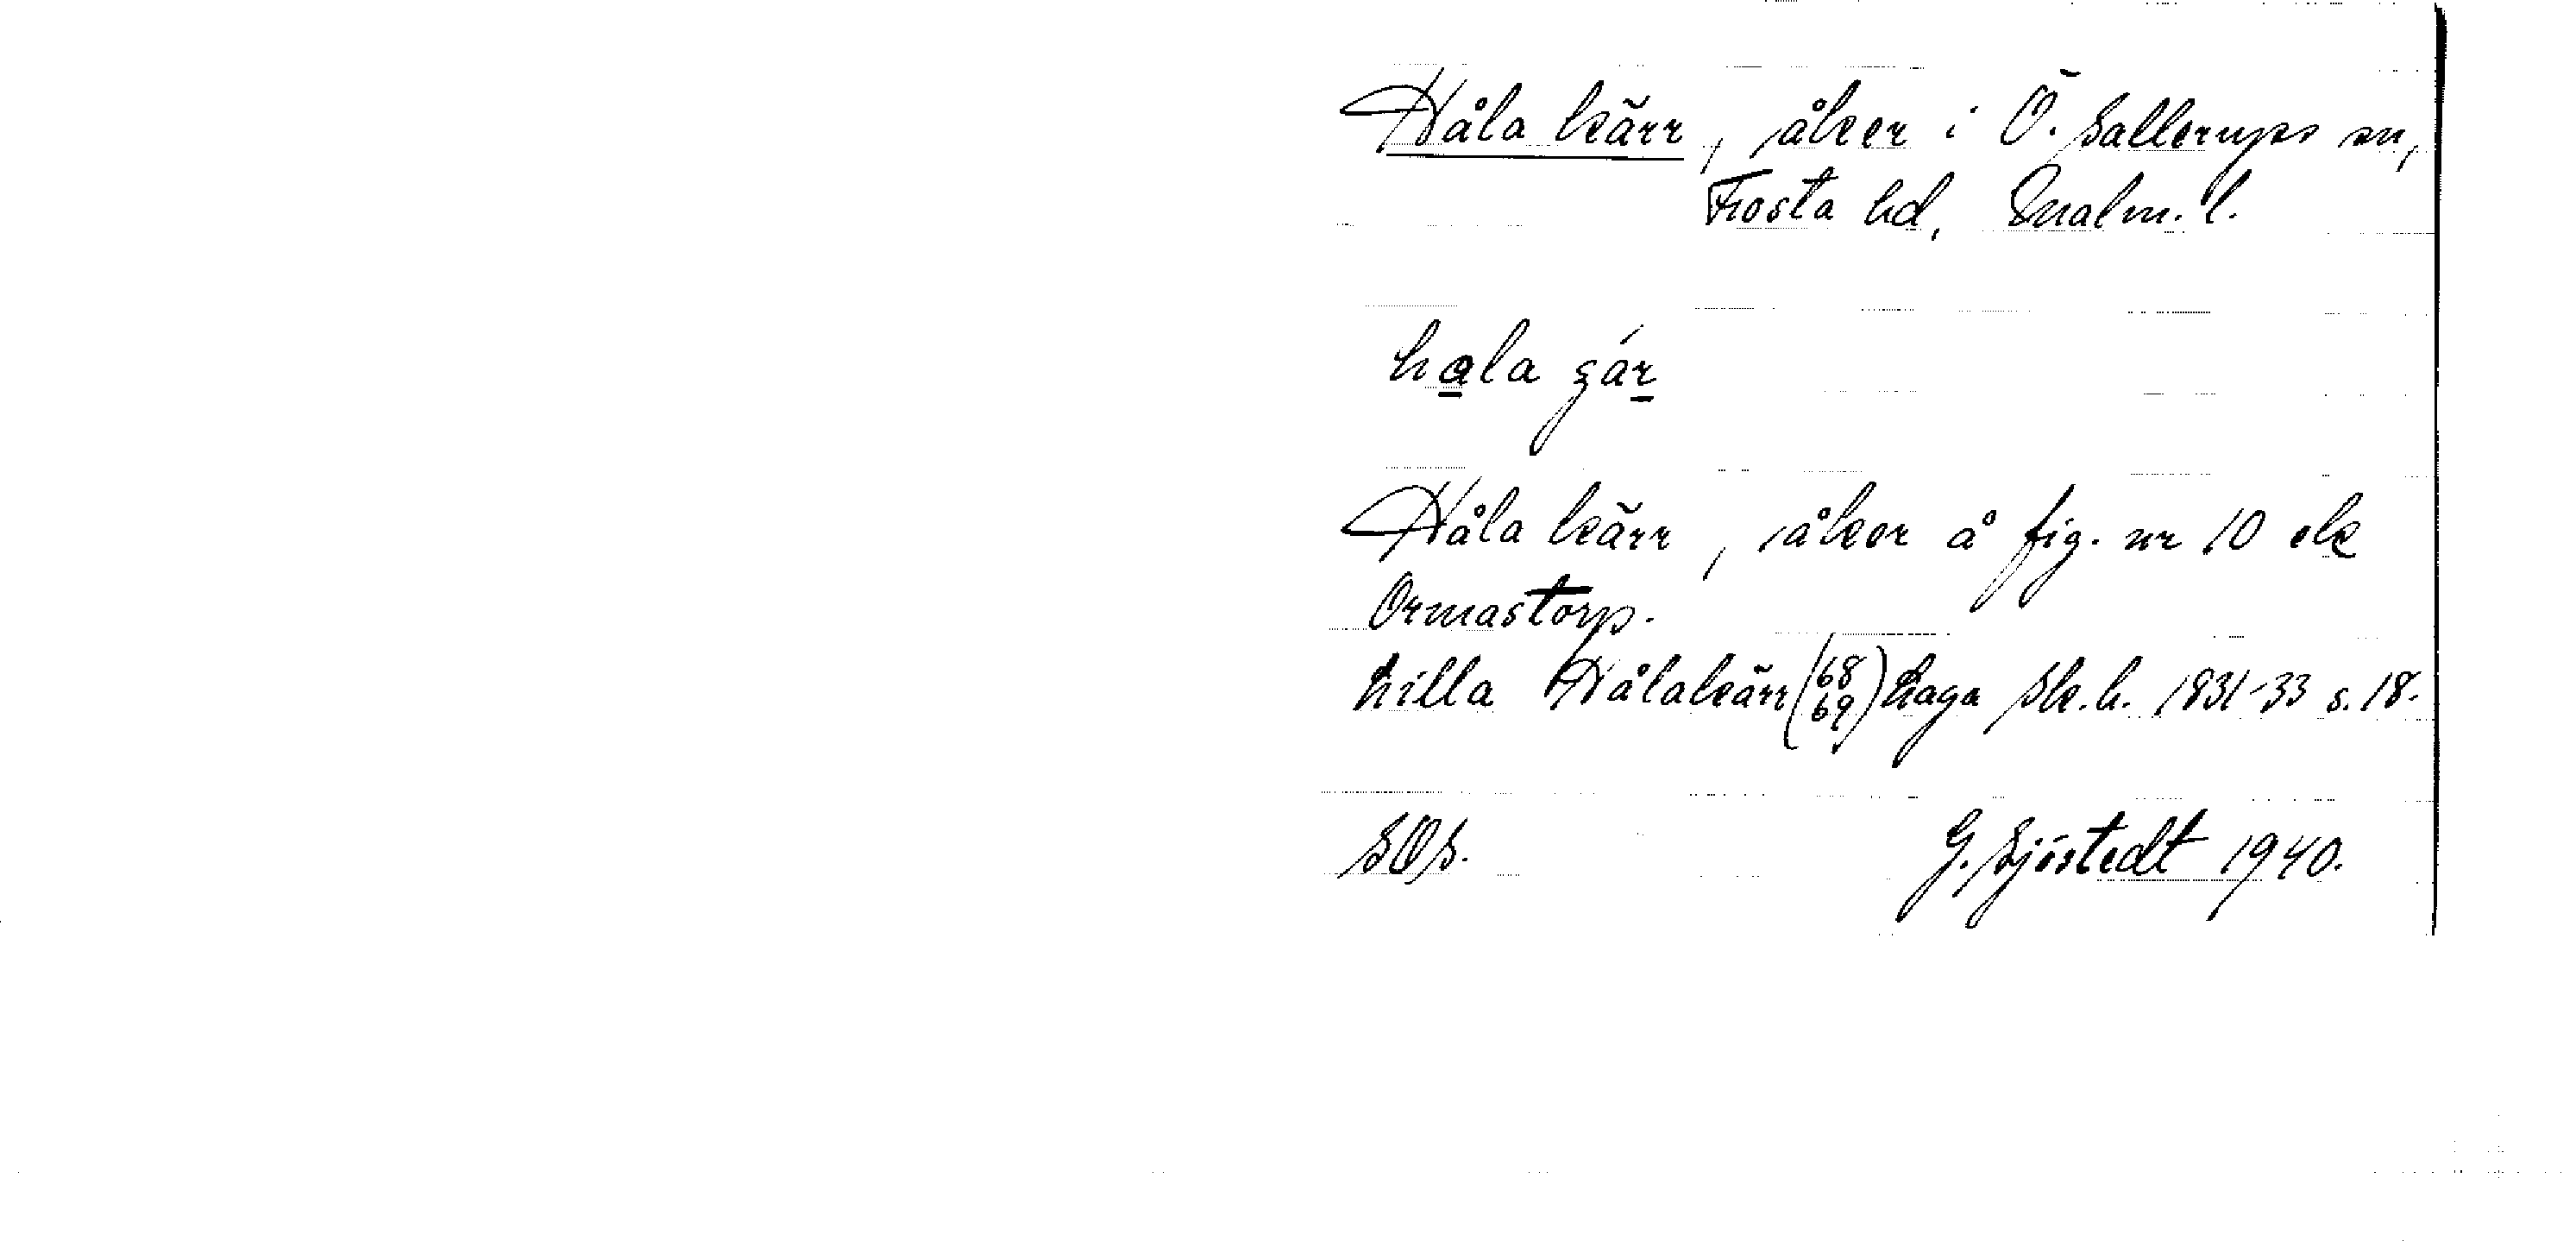 Håla kärr, åker i Ö. Sallerups sn,
Frosta hd, Malm. l.
hala gár
Håla kärr, åker å fig. nr 10 ek
Ormastorp.
lilla Hålakärr (68 69) haga Sk.h. 1831-33 s. 18.
SOS. G. Sjöstedt 1940.